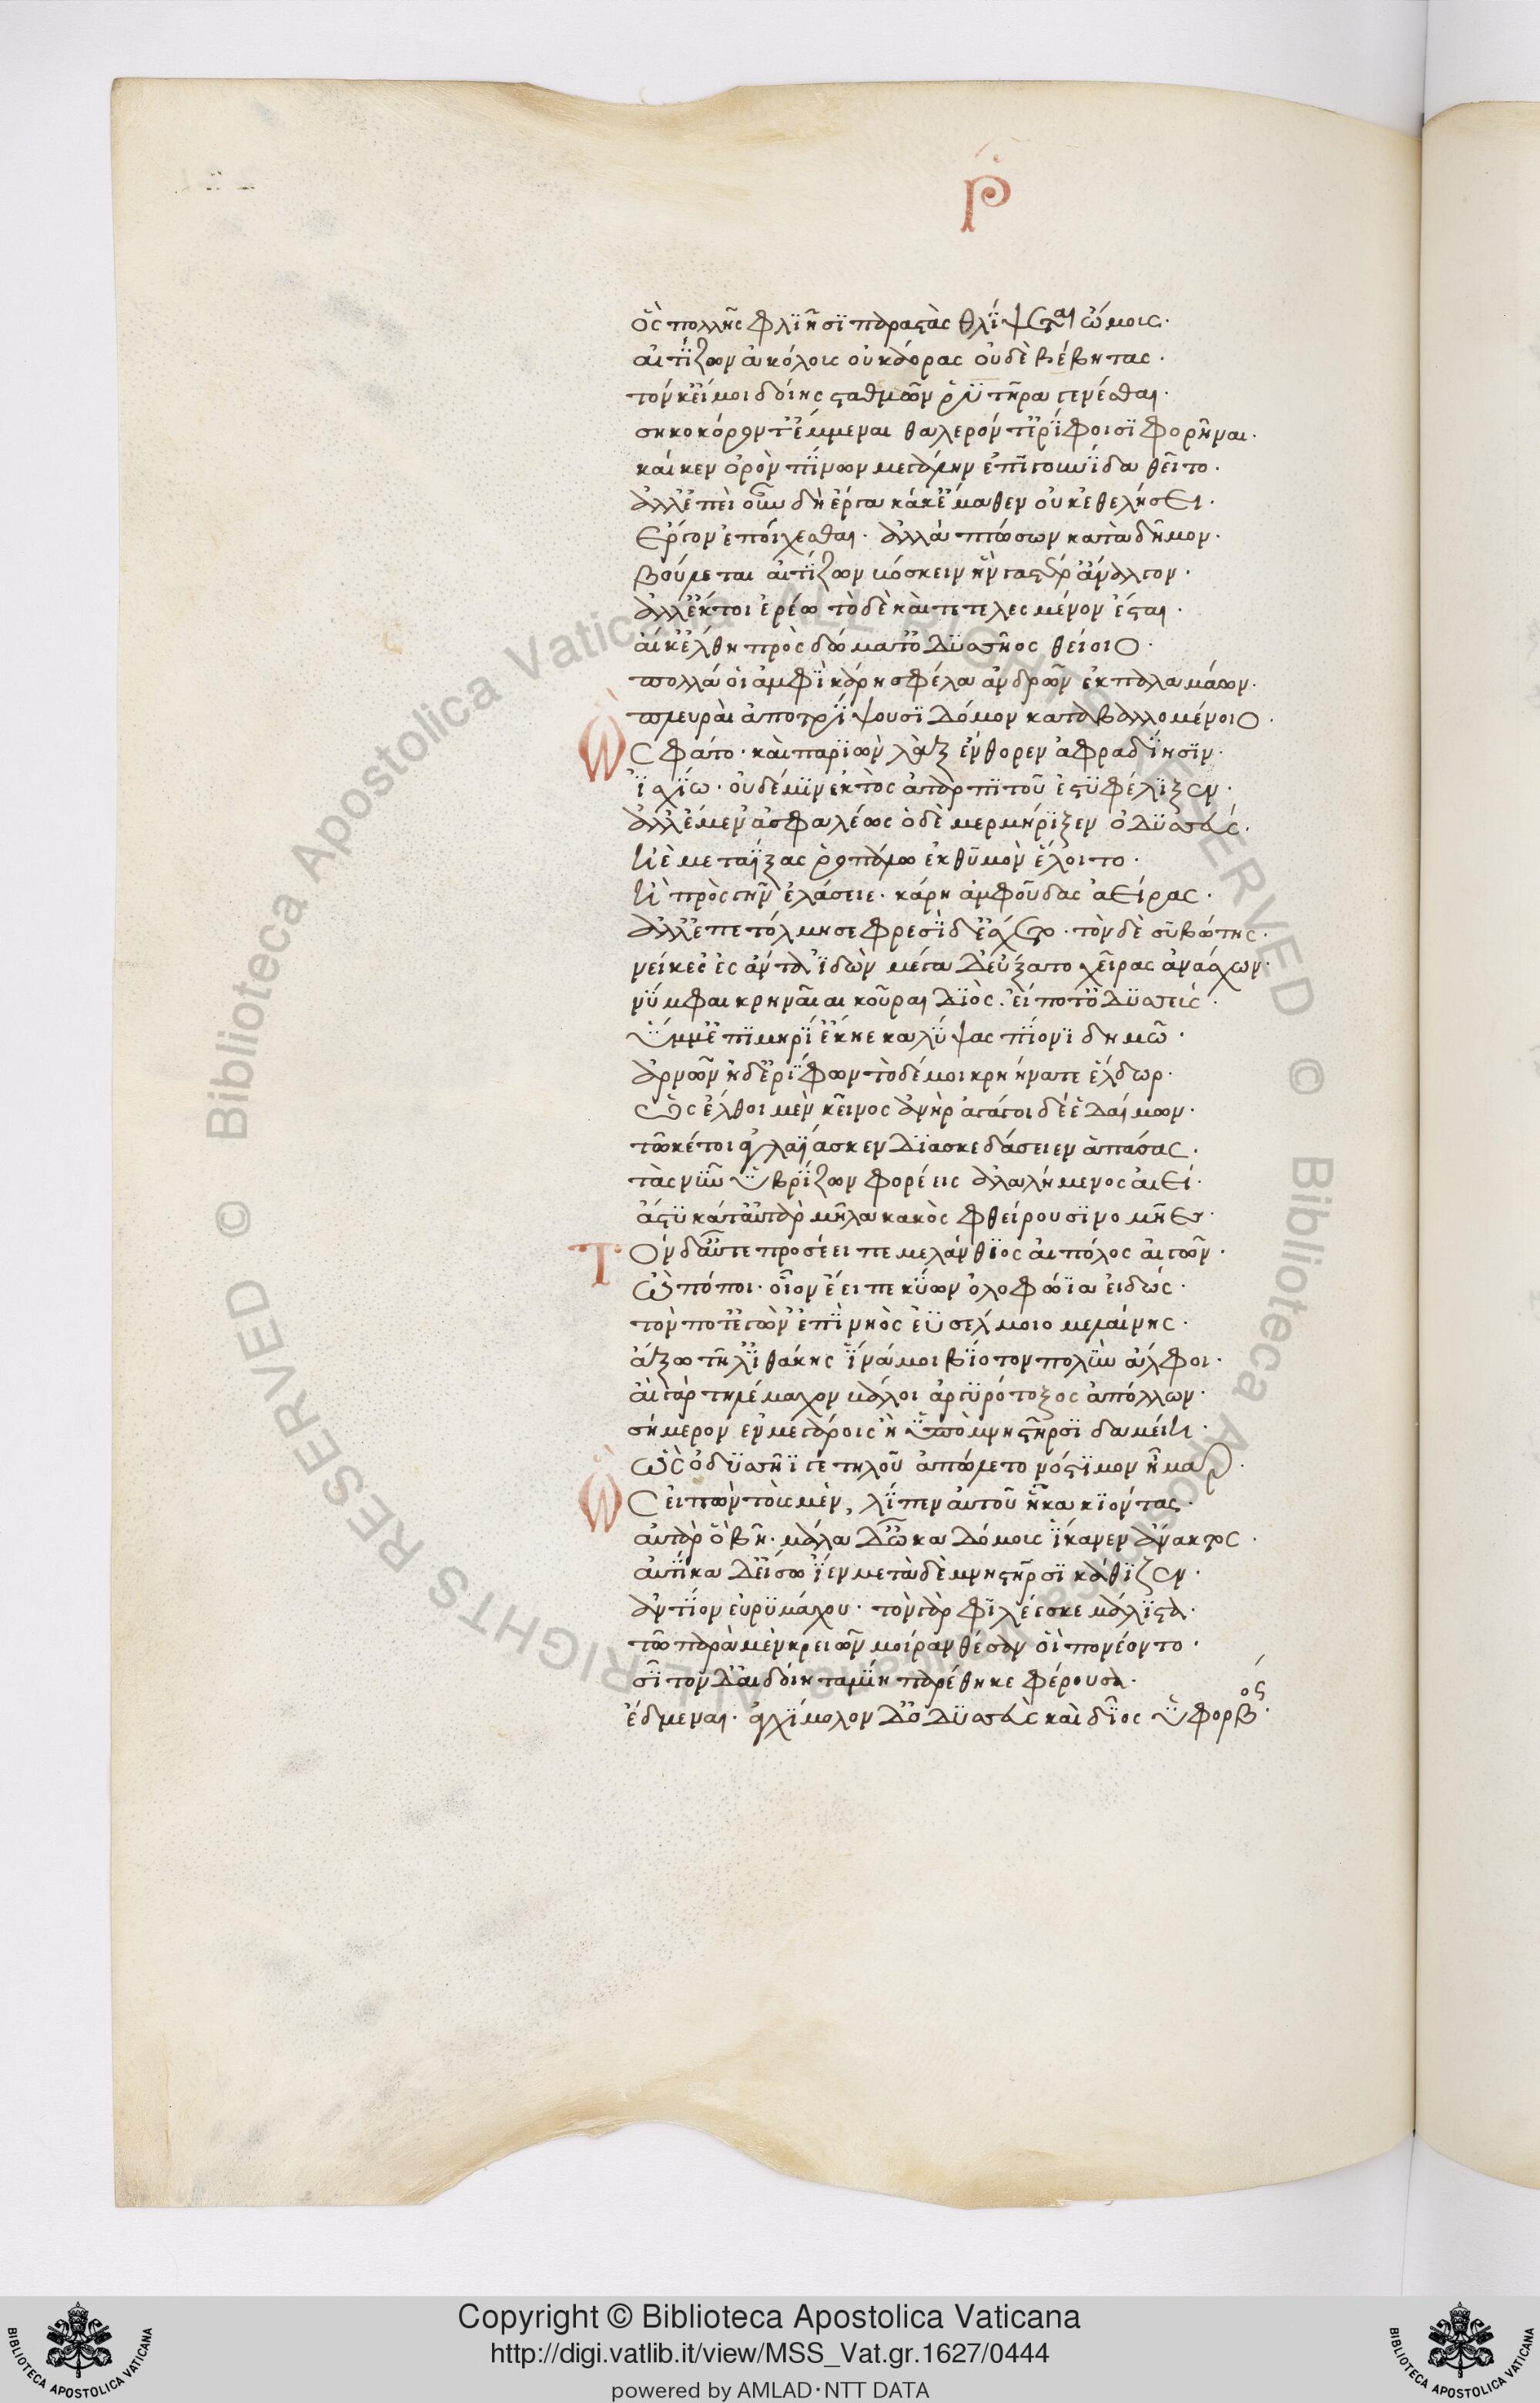 ρ
ὃς πολλῆς φλιῇσι παραστὰς θλίψεται ὤμους·
αἰτίζων ἀκόλους οὐκ ἄορας οὐδὲ λέβητας·
τόν κ' εἴ μοι δοίης σταθμῶν ῥυτῆρα γενέσθαι·
σηκοκόρον τ' ἔμμεναι θαλερόν τ' ἐρίφοισι φορῆναι·
καί κεν ὀρὸν πίνων μεγάλην ἐπιγουνίδα θεῖτο·
ἀλλ' ἐπεὶ οὖν δὴ ἔργα κάκ' ἔμαθεν οὐκ ἐθελήσει·
ἔργον ἐποίχεσθαι· ἀλλὰ πτώσσων κατὰ δῆμον·
βούλεται αἰτίζων βόσκειν ἣν γαστέρ' ἄναλτον·
ἀλλ' ἔκ τοι ἐρέω τὸ δὲ καὶ τετελεσμένον ἔσται·
αἴ κ' ἔλθη πρὸς δώματ' Ὀδυσσῆος θείοιο·
πολλά οἱ ἀμφὶ κάρη σφέλα ἀνδρῶν ἐκ παλαμάων·
πλευραὶ ἀποτρίψουσι δόμον κάτα βαλλομένοιο·
Ὣς φάτο· καὶ παριὼν λὰξ ἔνθορεν ἀφραδίησιν·
ἰσχίω· οὐδέ μιν ἐκτὸς ἀταρπιτοῦ ἐστυφέλιξεν·
ἀλλ' ἔμεν' ἀσφαλέως ὁ δὲ μερμήριξεν Ὀδυσσεύς·
ἠὲ μεταΐξας ῥοπάλω ἐκ θυμὸν ἕλοιτο·
ἢ πρὸς γῆν ἐλάσειε· κάρη ἀμφοῦδας ἀείρας·
ἀλλ' ἐπετόλμησε φρεσὶ δ' ἔσχετο· τὸν δὲ συβώτης·
νείκεσ' ἐς ἄντα ἰδὼν μέγα δ' εὔξατο χεῖρας ἀνασχών·
νύμφαι κρηναῖαι κοῦραι Διὸς· εἴ ποτ' Ὀδυσσεύς·
ὔμμ' ἐπὶ μηρί' ἔκηε καλύψας πίονι δημῶ·
ἀρνῶν ἠδ' ἐρίφων τόδε μοι κρηήνατε ἐέλδωρ·
ὡς ἔλθοι μὲν κεῖνος ἀνὴρ ἀγάγοι δέ ἑ δαίμων·
τῶ κέ τοι ἀγλαΐας κεν διασκεδάσειεν ἁπάσας·
τὰς νῦν ὑβρίζων φορέεις ἀλαλήμενος αἰεί·
ἄστυ κάτ' αὐτὰρ μῆλα κακὸς φθείρουσι νομῆες·
Τὸν δ' αὖτε προσέειπε μελάνθιος αἰπόλος αἰγῶν·
Ὢ πόποι· οἷον ἔειπε κύων ὀλοφώϊα εἰδώς·
τόν ποτ' ἐγὼν ἐπὶ νηὸς ἐϋσέλμοιο μελαίνης·
ἄξω τῆλ' ἰθάκης ἵνα μοι βίοτον πολὺν ἄλφοι·
αἲ γὰρ τηλέμαχον βάλοι ἀργυρότοξος ἀπόλλων·
σήμερον ἐν μεγάροις ἢ ὑπὸ μνηστῆρσι δαμείη·
ὡς ὀδυσσῆΐ γε τηλοῦ ἀπώλετο νόστιμον ἦμαρ·
Ὣς εἰπὼν τοὺς μὲν, λίπεν αὐτοῦ ἦκα κιόντας·
αὐτὰρ ὃ βῆ· μάλα δ' ὦκα δόμους ἵκανεν ἄνακτος·
αὐτίκα δ' εἴσω ἴεν μετὰ δὲ μνηστῆρσι κάθιζεν·
ἀντίον εὐρυμάχου· τὸν γὰρ φιλέεσκε μάλιστα·
τῶ πάρα μὲν κρειῶν μοῖραν θέσαν οἳ πονέοντο·
σῖτον δ' αἰδοίη ταμίη παρέθηκε φέρουσα·
ἔδμεναι· ἀγχίμολον δ' Ὀδυσσεὺς καὶ δῖος ὑφορβός·
Copyright © Biblioteca Apostolica Vaticana
http://digi.vatlib.it/view/MSS_Vat.gr.1627/0444
powered by AMLAD·NTT DATA